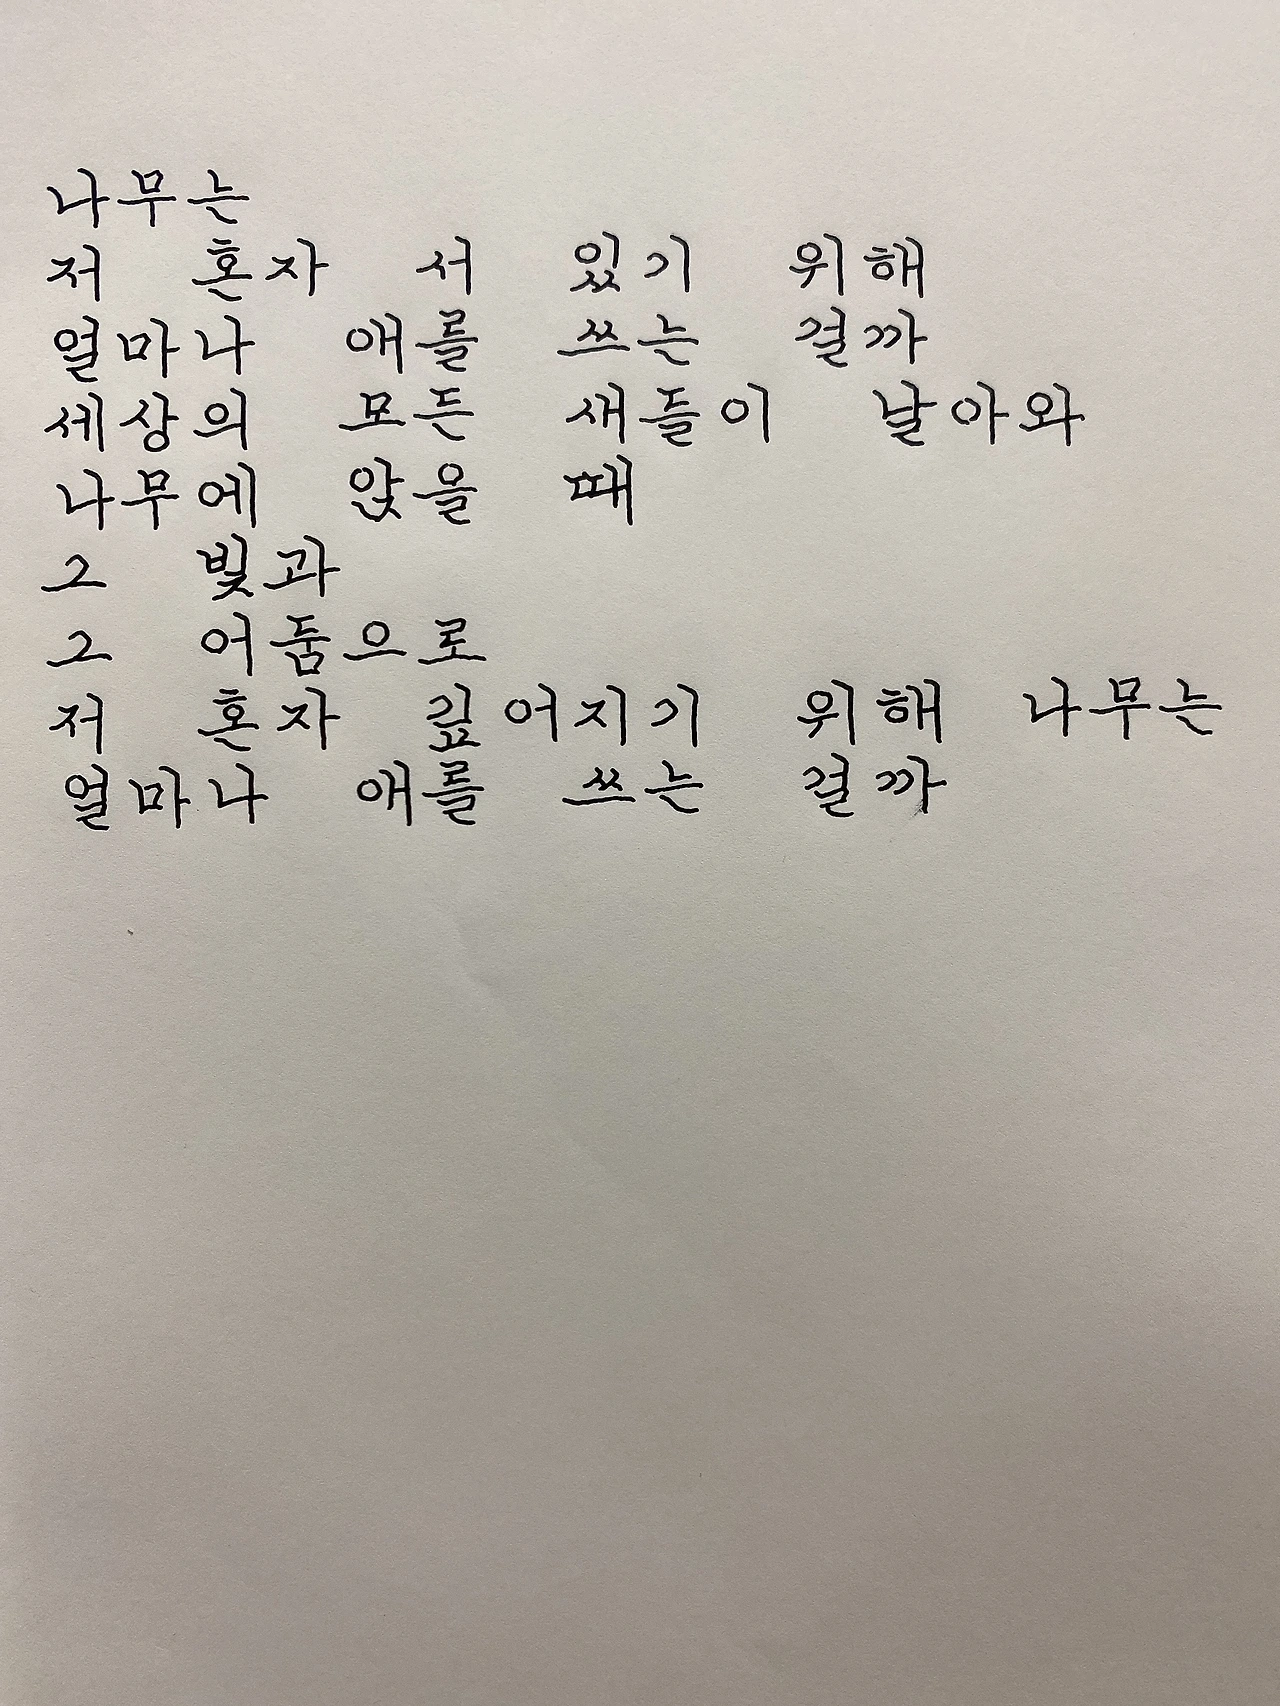 나무는
저 혼자 서 있기 위해
얼마나 애를 쓰는 걸까
세상의 모든 새들이 날아와
나무에 앉을 때
그 빛과
그 어둠으로
저 혼자 깊어지기 위해 나무는
얼마나 애를 쓰는 걸까